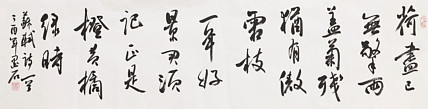 荷盡已
無擎雨
盖菊残
猶有傲
霜枝
一年好
景君須
記正是
橙黄橘
绿時
蘇軾詩一首